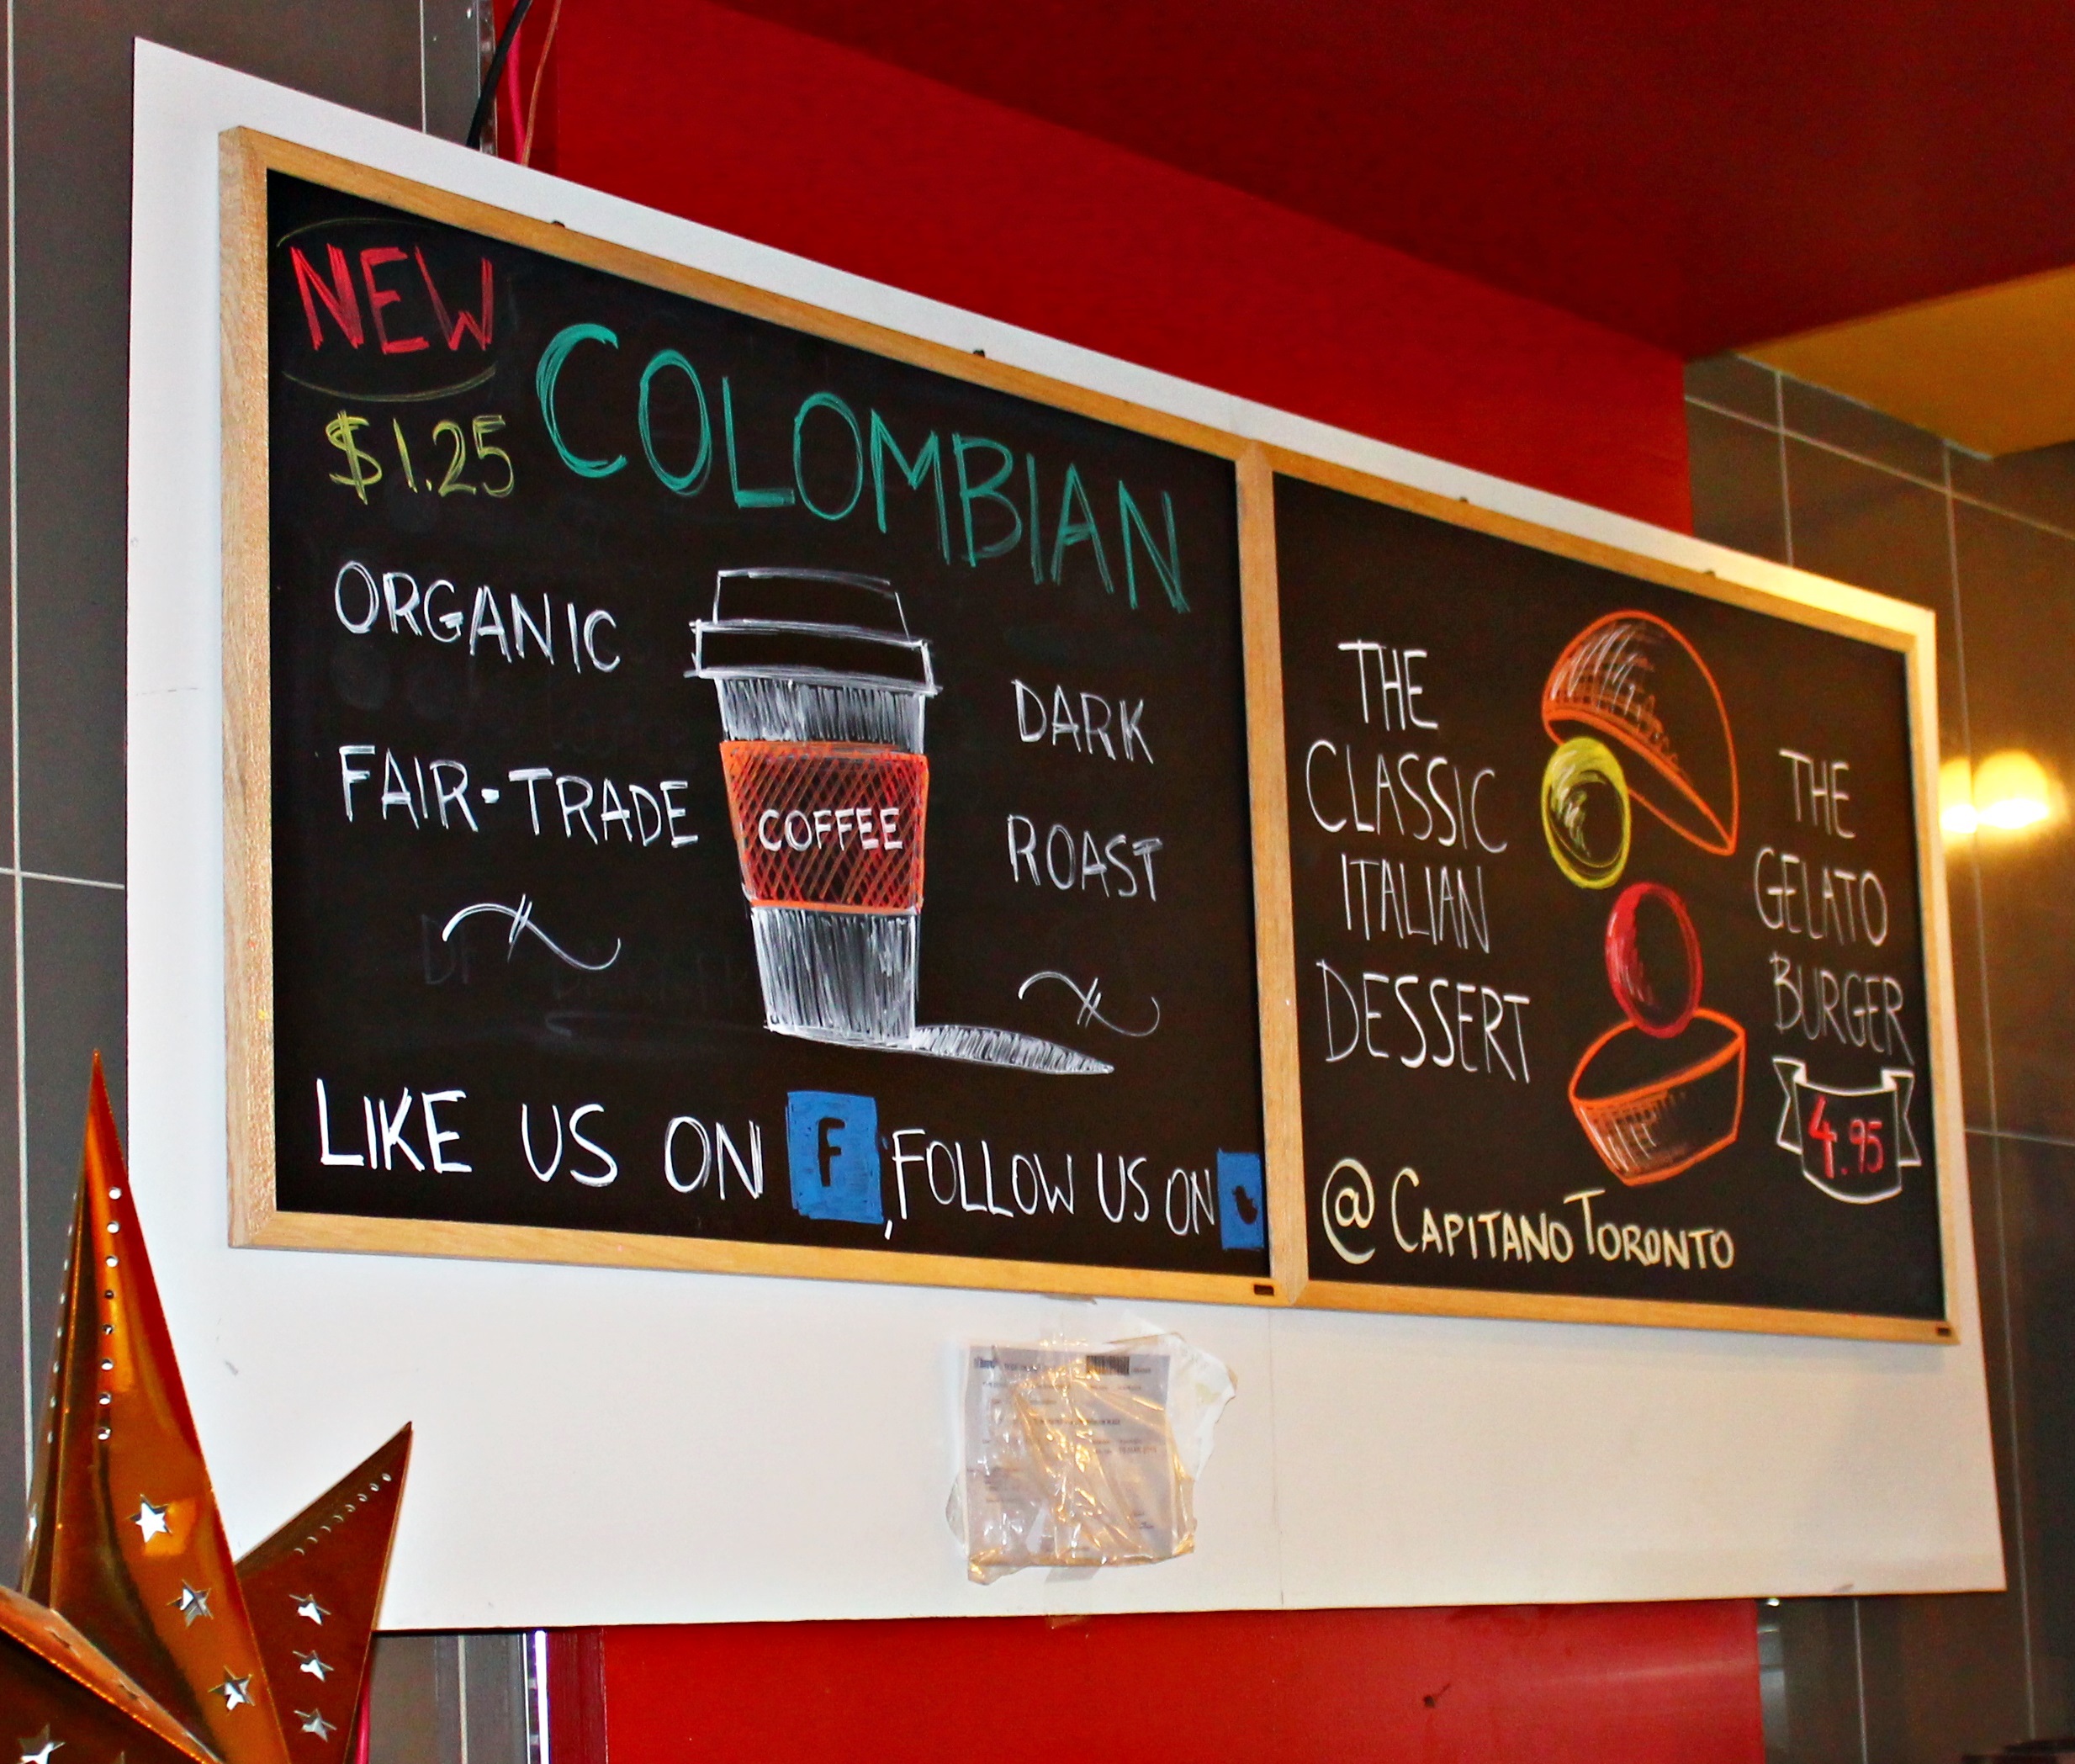 NEW
$1.25
COLOMBIAN
ORGANIC
FAIR-TRADE
COFFEE
DARK
ROAST
LIKE US ON f, FOLLOW US ON
THE
CLASSIC
ITALIAN
DESSERT
THE
GELATO
BURGER
4.95
@CAPITANOTORONTO